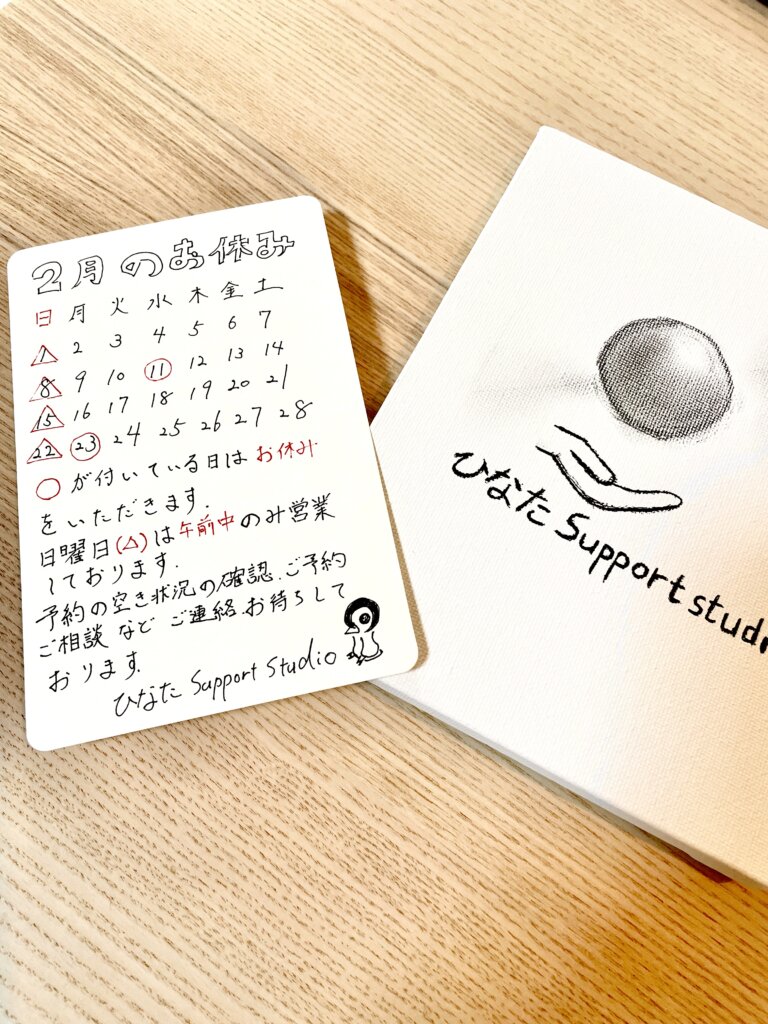 2月のお休み
日 月 火 水 木 金 土
1 2 3 4 5 6 7
8 9 10 11 12 13 14
15 16 17 18 19 20 21
22 23 24 25 26 27 28
○が付いている日はお休み
をいただきます.
日曜日(△)は午前中のみ営業
しております.
予約の空き状況の確認、ご予約
ご相談などご連絡お待ちして
おります.
ひなた Support Studio
ひなた Support studi